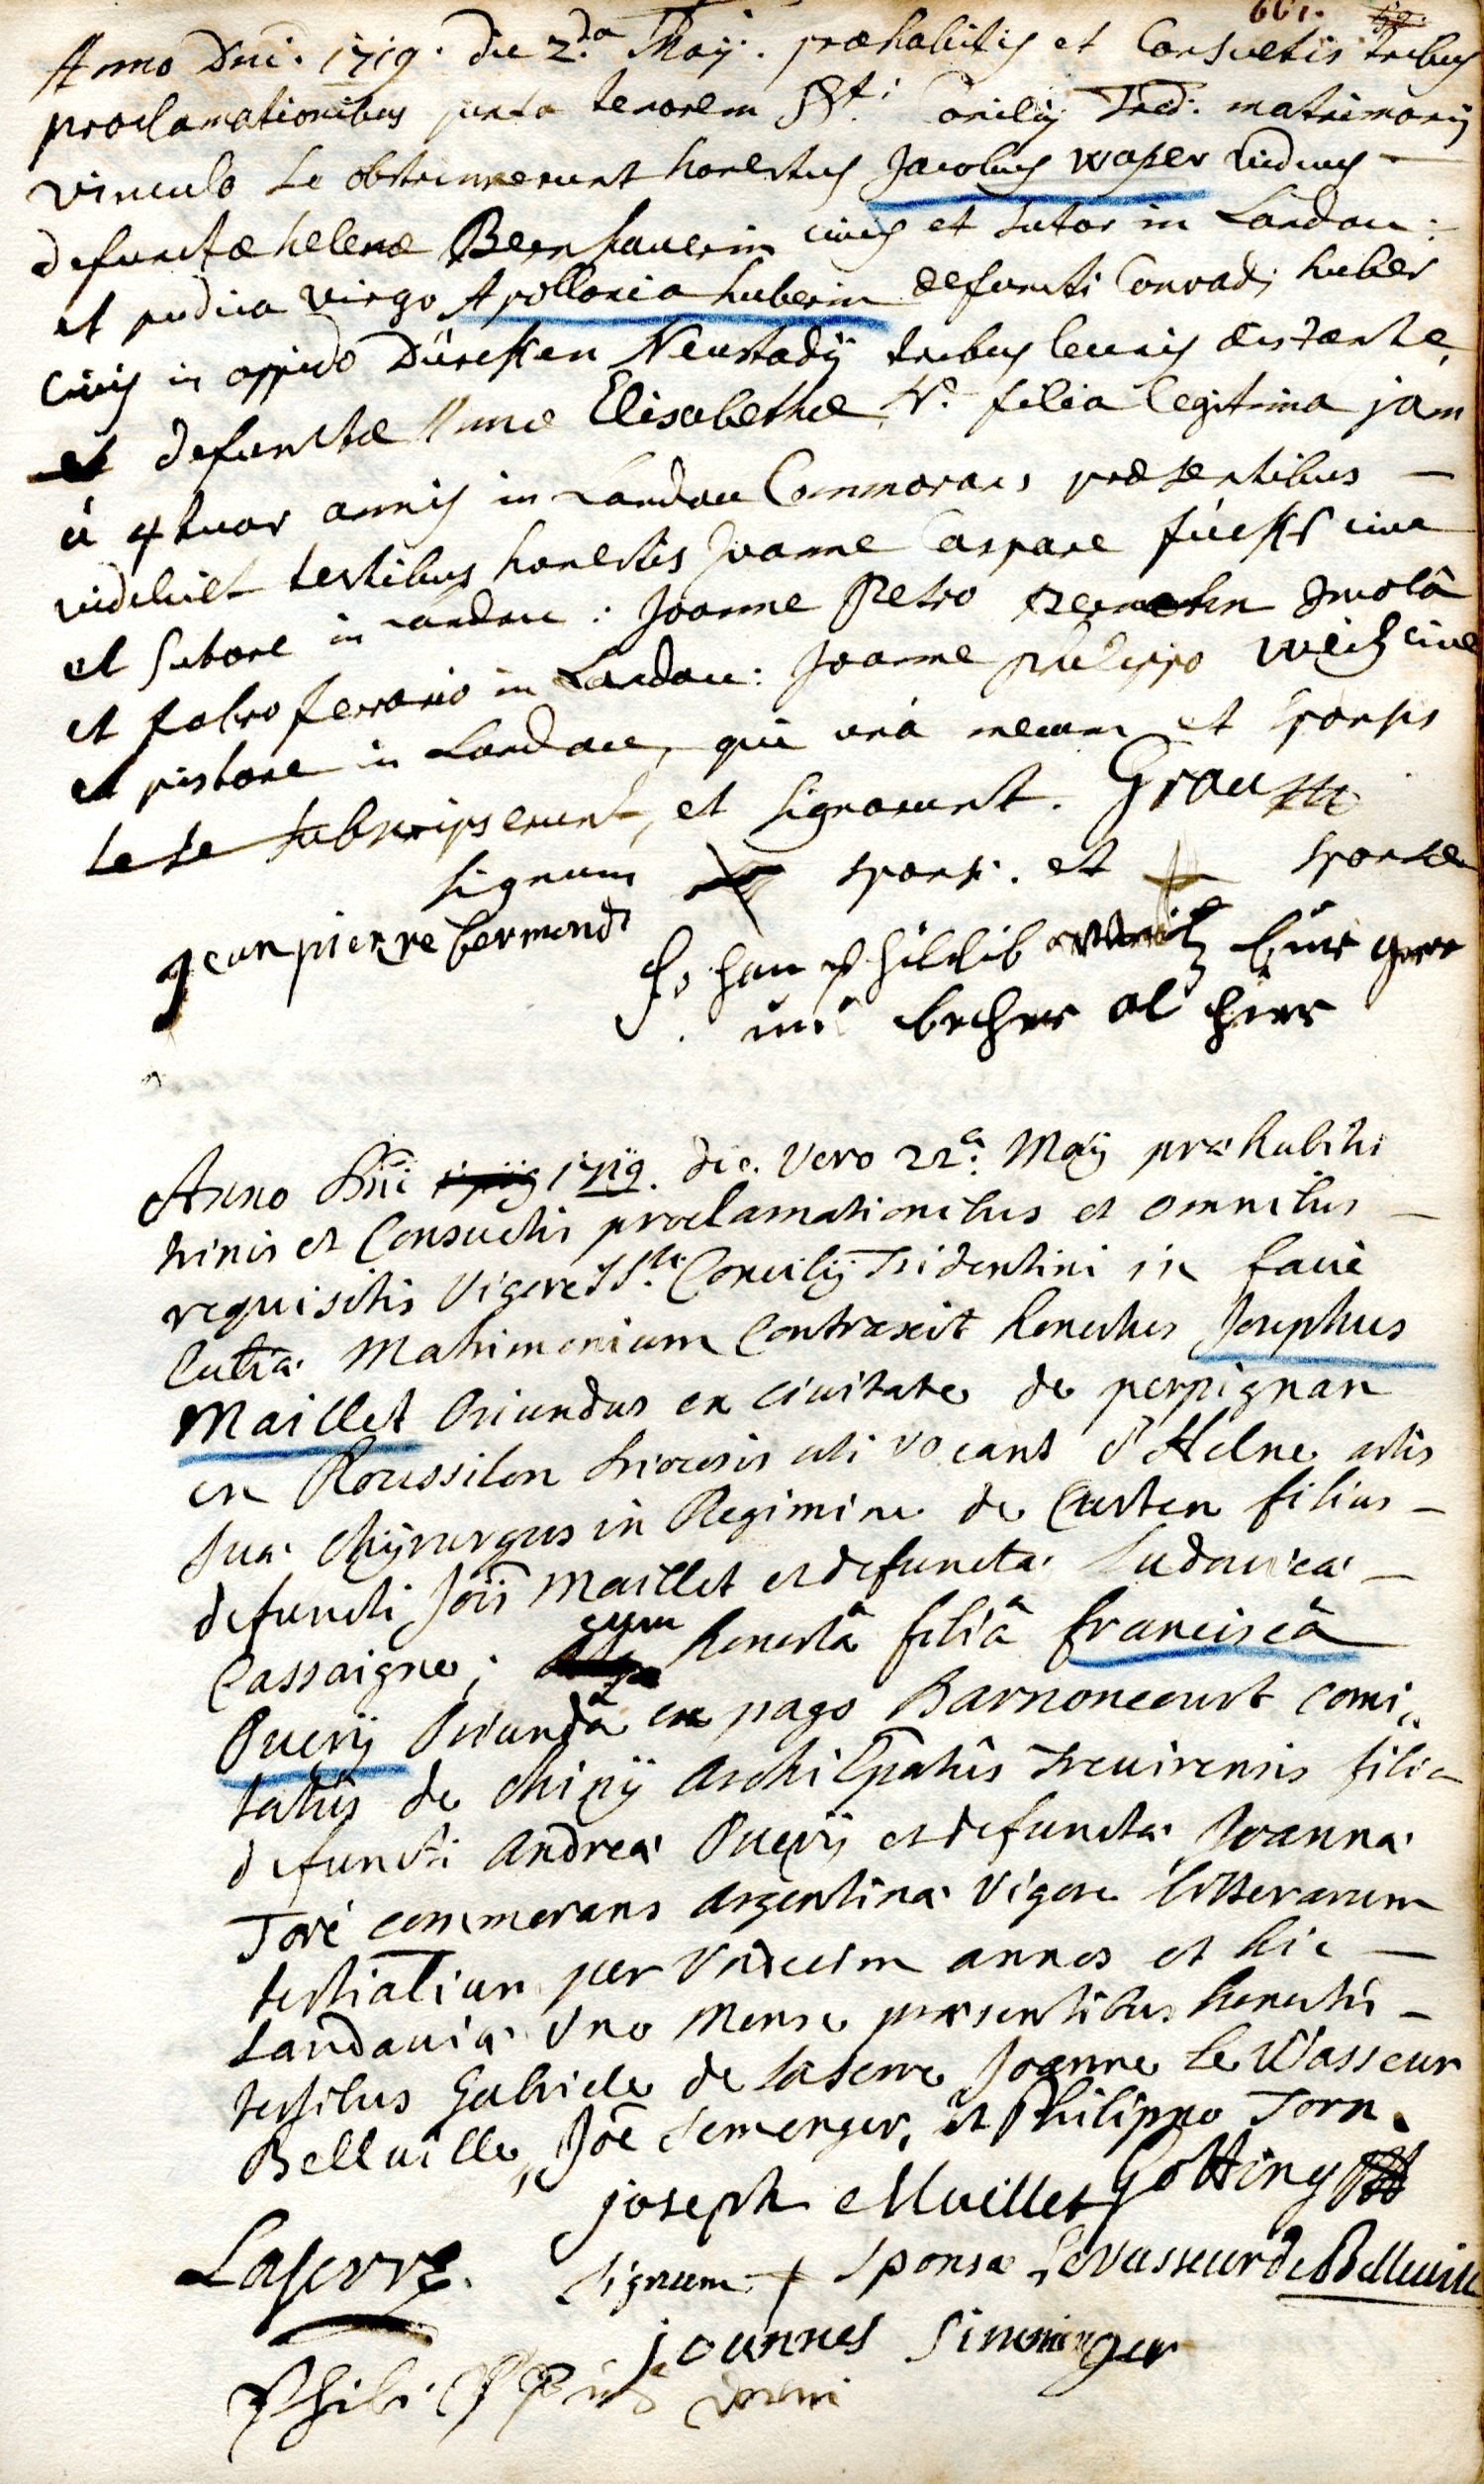 661.
Anno Dni. 1719. die 2.da Maij. præhabitis et Consuetis tribus
proclamationibus juxta tenorem SSti Concilij Trid: matrimonij
vinculo se obstrinxerunt honestus Jacobus waser viduus
defunctæ helenæ civis et sutor in Landau:
et pudica virgo Apollonia huberin defuncti Conradi huber
Civis in oppido Dürcken Neustadij tribus leucis distante,
et defunctæ Annæ Elisabethæ N. filia legitima jam
à 4tuor annis in Landau Commorans præsentibus
videlicet testibus honestis Joanne Caspare fuchs cive
et sutore in Landau: Joanne Petro Incolâ
et fabro ferrario in Landau: Joanne philippo weitz cive
et pistore in Landau, qui unà mecum et sponsis
sese subscripserunt, et signarunt. Grau
signum sponsi. et sponsæ
jean pierre bermond
Johan philib weitz burger
und becher al hier
Anno Dni 1719. die. vero 22a. Maij præhabitis
trinis et Consuetis proclamationibus et omnibus
requisitis vigore SSti Concilij Tridentini in facie
Eccliæ Matrimonium Contraxit honestus Josephus
Maillet Oriundus ex civitate de perpignan
en Roussilon Diocesis uti vocant d'Helne artis
suæ Chyrurgus in Regimine de Casten filius
defuncti Jois Maillet et defunctæ Ludovicæ
Cassaigne; cum honestâ filiâ franciscâ
Puerij Oriundâ ex pago Barnoncourt comi
tatus de Chiny ArchiEpatûs Trevirensis filia
defuncti Andreæ Puerij et defunctæ Joannæ
Toré commorans Argentinæ vigore litterarum
testialium per Undecim annos et hic
Landaviæ Uno Mense præsentibus honestis
testibus Gabriele de Laserre Joanne Le Vasseur
Belluille, Joe Semenger, et Philippo Torn.
joseph Maillet Gotting
Laserre. Signum + Sponsæ LeVasseur de Belleuille
joannes Simminger
Philippus